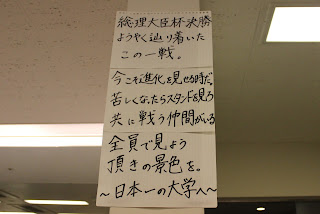 総理大臣杯決勝
ようやく辿り着いた
この一戦。
今こそ進化を見せる時だ
苦しくなったらスタンドを見ろ
共に戦う仲間がいる
全員で見よう
頂きの景色を。
〜日本一の大学へ〜